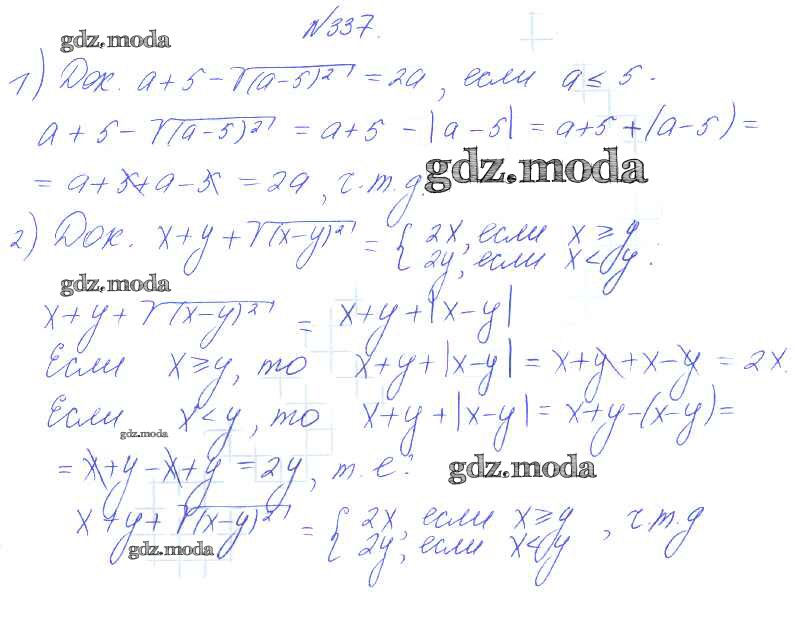 №337.
gdz.moda
1) Док. a+5-√(a-5)² = 2a, если a ≤ 5.
a+5-√(a-5)² = a+5-|a-5| = a+5+(a-5) =
gdz.moda
= a+5+a-5 = 2a, ч.т.д.
2) Док. x+y+√(x-y)² = { 2x, если x ≥ y
2y, если x < y.
gdz.moda
x+y+√(x-y)² = x+y+|x-y|
Если x ≥ y, то x+y+|x-y| = x+y+x-y = 2x.
Если x < y, то x+y+|x-y| = x+y-(x-y) =
gdz.moda
= x+y-x+y = 2y, т.е.
gdz.moda
x+y+√(x-y)² = { 2x, если x ≥ y
2y, если x < y, ч.т.д
gdz.moda